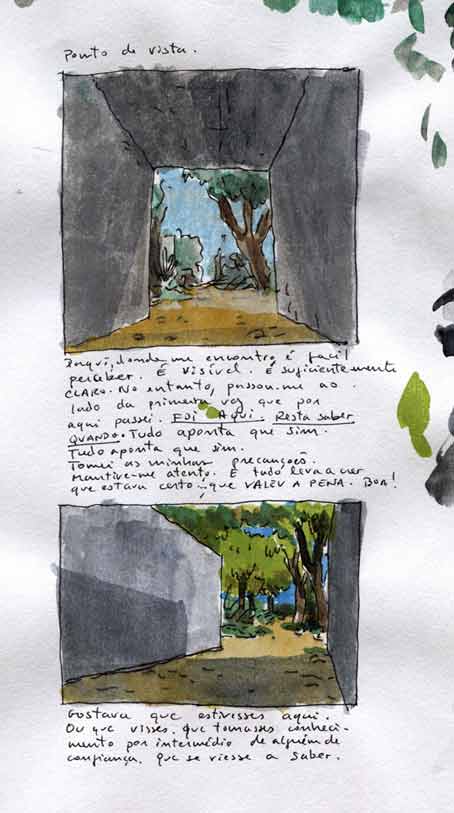 Ponto de vista.
Daqui, donde me encontro é facil
perceber. É visível. É suficientemente
CLARO. No entanto, passou-me ao
lado da primeira vez que por
aqui passei. FOI AQUI. Resta saber
QUANDO. Tudo aponta que sim.
Tudo aponta que sim.
Tomei as minhas precauções.
Mantive-me atento. E tudo leva a crer
que estava certo... que VALEU A PENA. BOA!
Gostava que estivesses aqui.
Ou que visses. Que tomasses conheci-
mento por intermédio de alguém de
confiança. Que se viesse a saber.